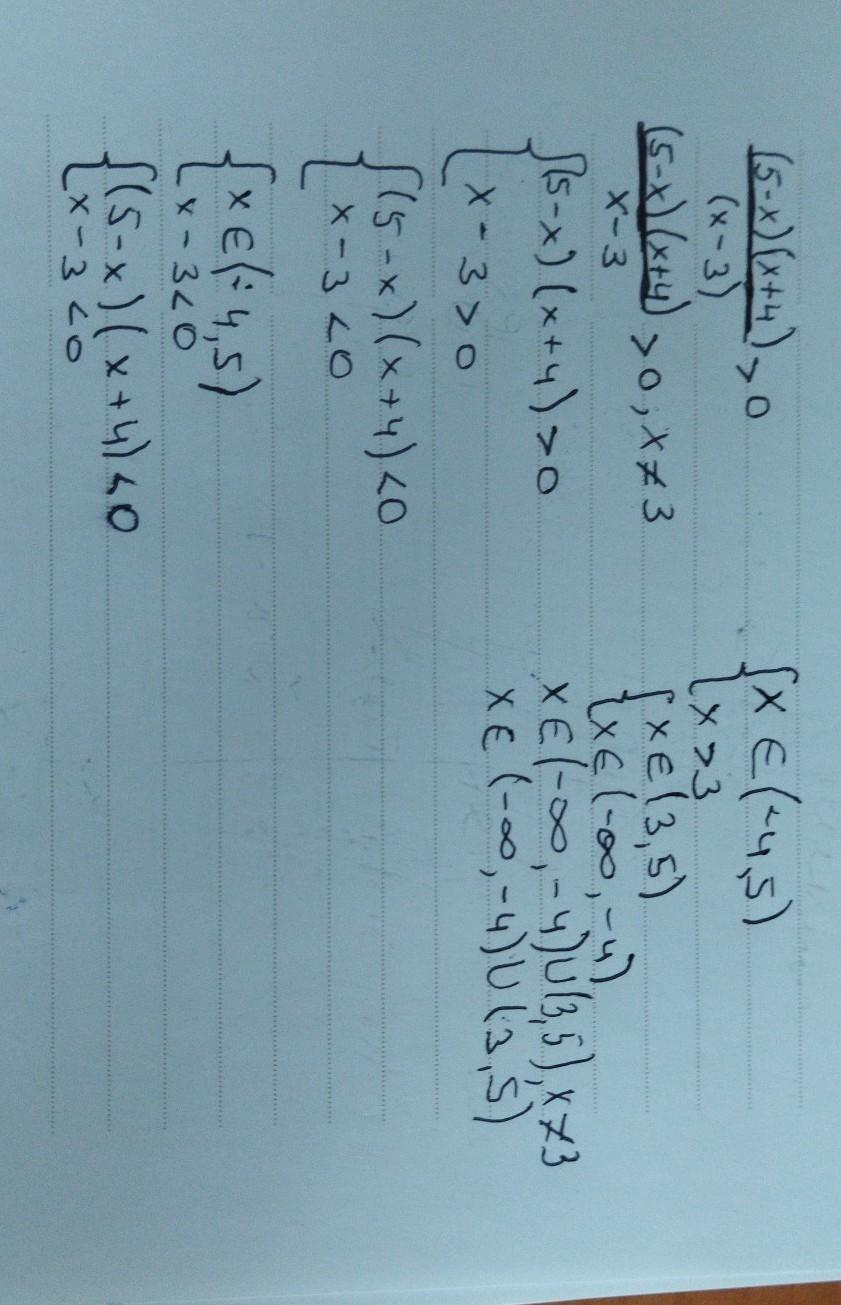 (5-x)(x+4)/(x-3) > 0
(5-x)(x+4)/x-3 > 0, x ≠ 3
{(5-x)(x+4) > 0
{x-3 > 0
{(5-x)(x+4) < 0
{x-3 < 0
{x ∈ (-4,5)
{x-3 < 0
{(5-x)(x+4) < 0
{x-3 < 0
{x ∈ (-4,5)
{x > 3
{x ∈ (3,5)
{x ∈ (-∞,-4)
x ∈ (-∞,-4) ∪ (3,5), x ≠ 3
x ∈ (-∞,-4) ∪ (3,5)